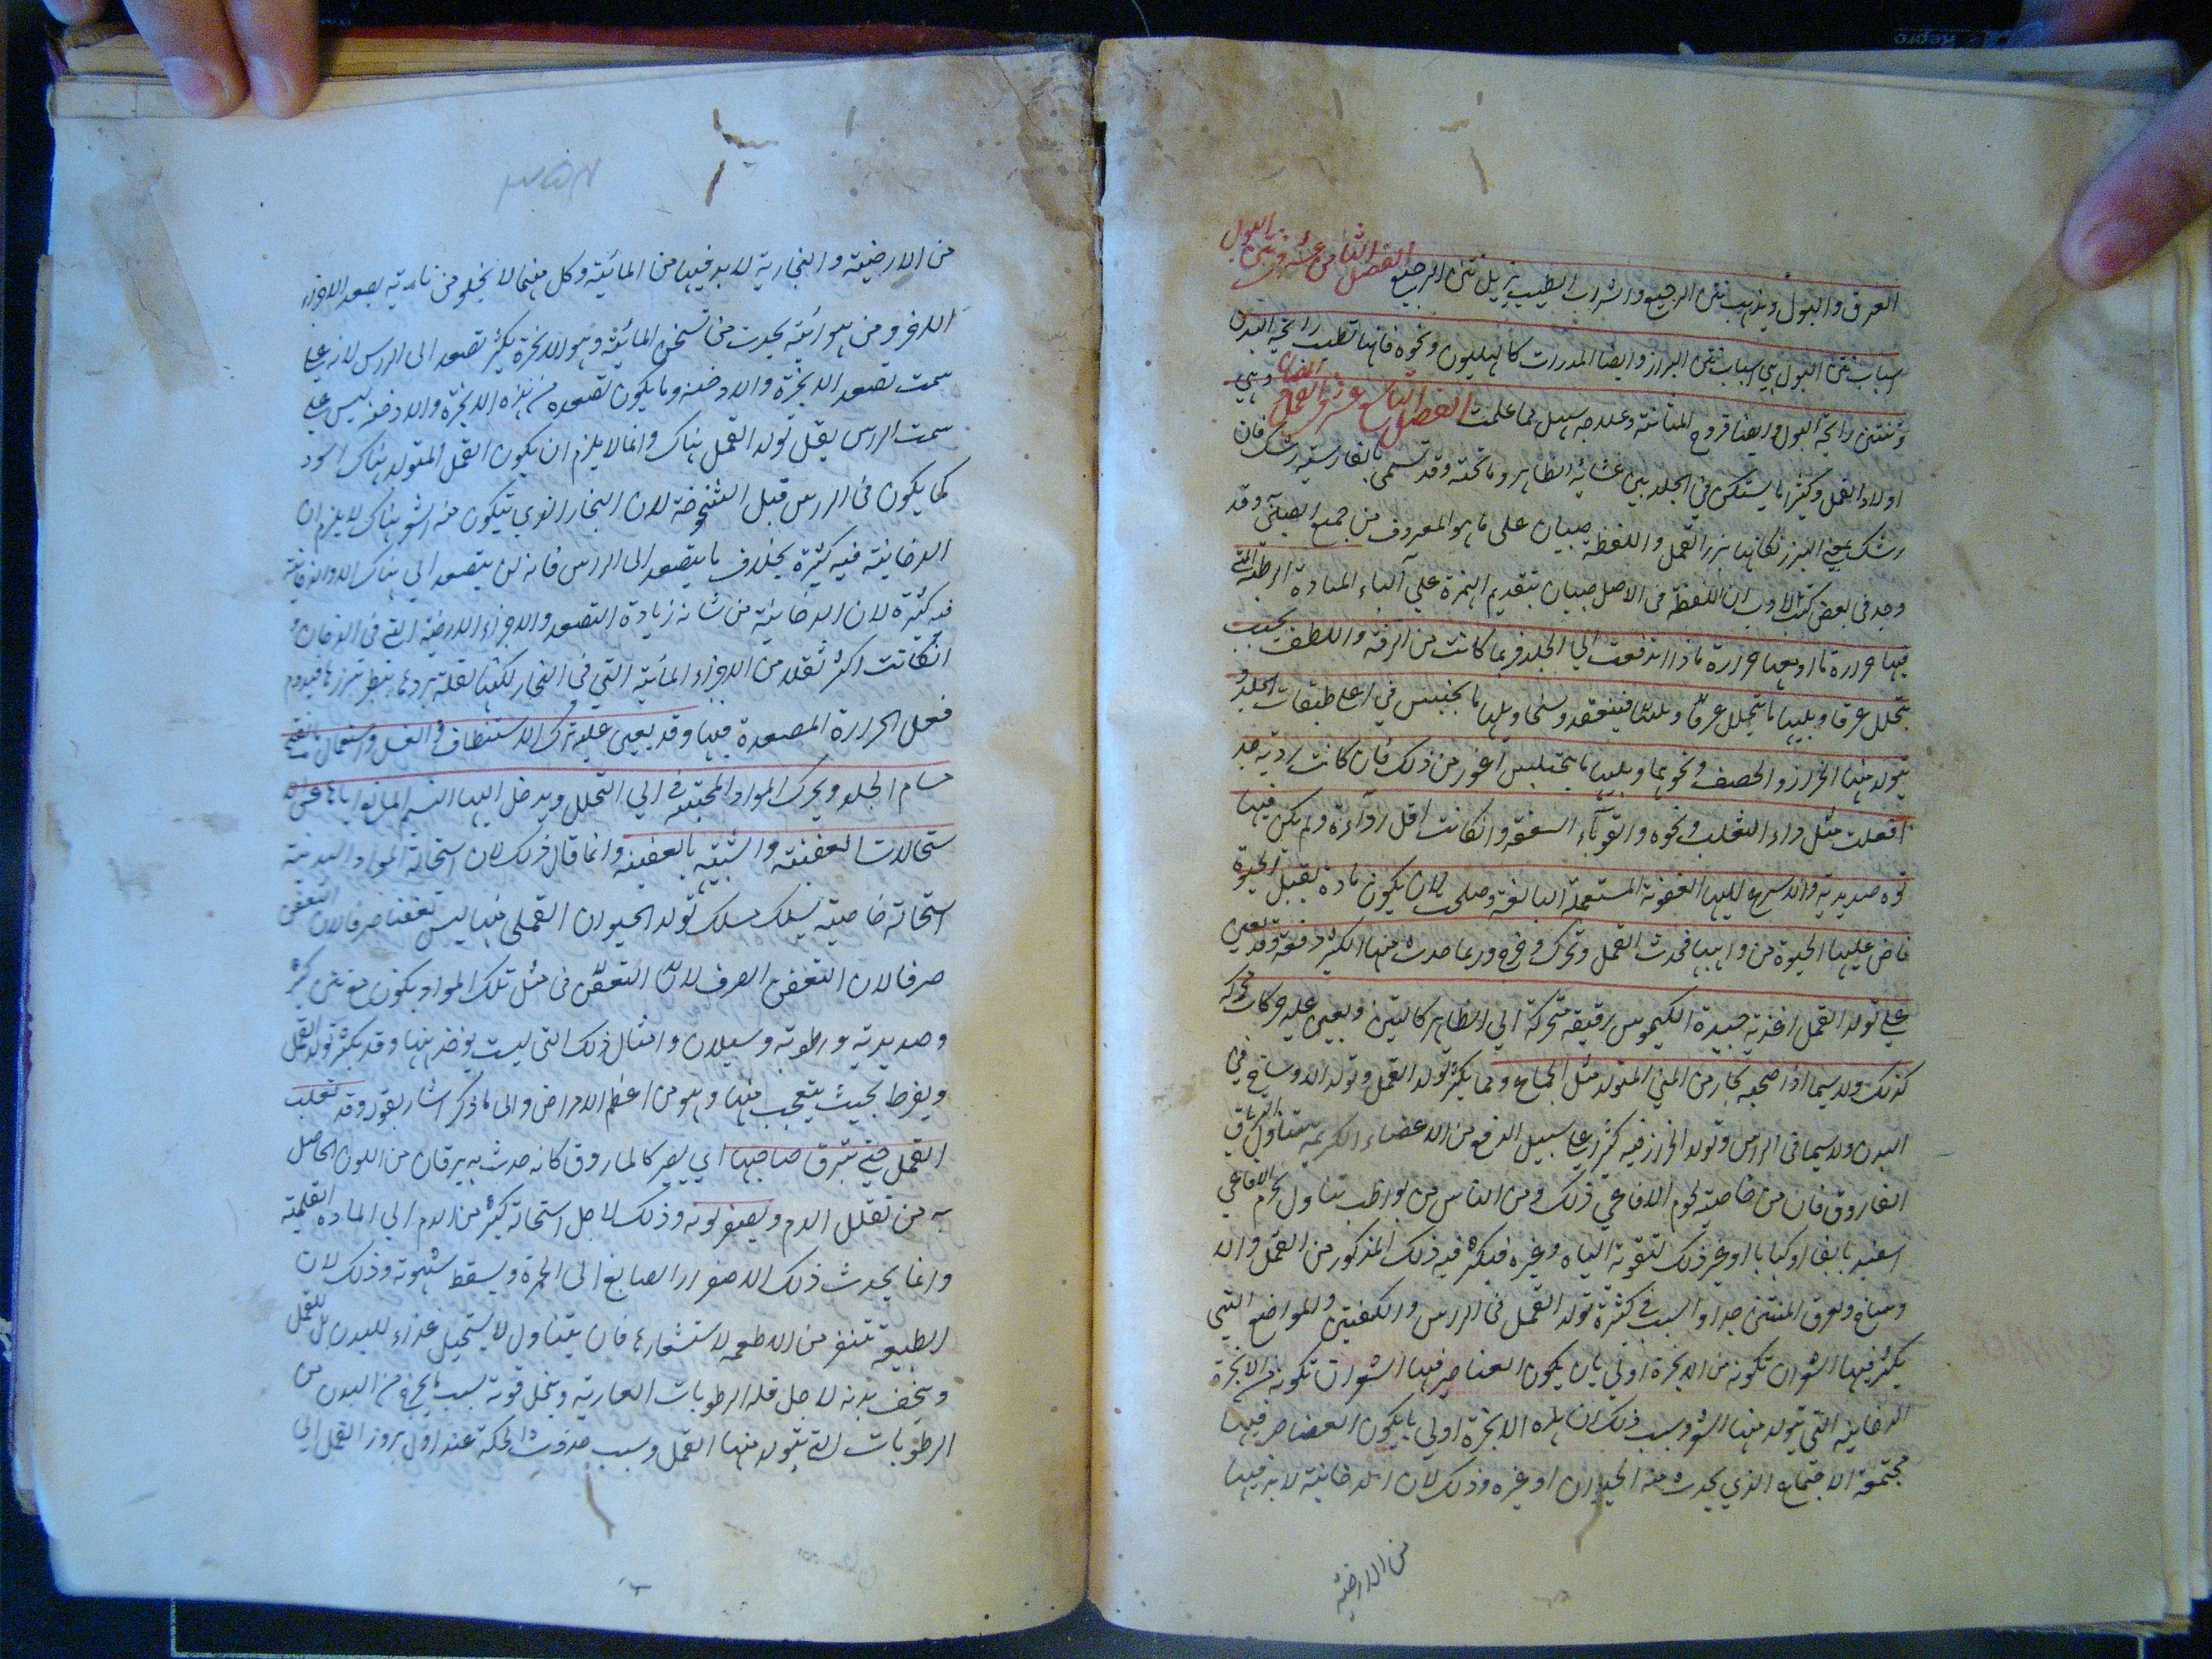 العرق والبول ويذهب نتن الرجيع والشراب الطيب يزيل نتن الرجيع الفصل الثامن عشر في نتن البول
اسباب نتن البول هي اسباب نتن البراز وايضا المدرات كالهليون ونحوه فانها تطيب رائحة البدن
وتنتن رائحة البول وايضا قروح المثانة وعلاجه سهل مما علمت الفصل التاسع عشر في القمل والصئبان وهي
اولاد القمل وكثيرا ما يستكن في الجلد بين غشائه الظاهر وما تحته وقد تسمى بالفارسية رشك فان
رشك بمعنى البزر فكانها بزر القمل واللفظة صيبان على ما هو المعروف من جمع الصبي وقد
وجد في بعض كتب الادب ان اللفظة في الاصل صبيان بتقديم الهمزة على الباء المادة الرطبة التي
فيها حرارة ما او معها حرارة ما اذا اندفعت الى الجلد فربما كانت من الرقة واللطف بحيث
يتحلل عرقا ويليها ما يتحلل عرقا وينعقد وسخا ويليها ما يحتبس في اعلى طبقات الجلد و
يتولد منها الحزاز والحصف ونحوهما ويليها ما يحتبس اغور من ذلك فان كانت ردية جدا
فعلت مثل داء الثعلب ونحوه والقوباء السعفة وان كانت اقل رداءة ولم يكن فيها
قوة صديدية ولا سرع اليها العفونة المستعملة البالغة وصلحت لان يكون مادة يقبل الحيوة
فاض عليها الحيوة من واهبها فحدث القمل وتحرك وخرج وربما حدث منها الكثير دفعة وقد يعين
على تولد القمل اغذية جيدة الكيموس رقيقة متحركة الى الظاهر كالتين ويعين عليه حركات محركة
كذلك ولا سيما اذا صحبه بخار من المني المتولد مثل الجماع ومما يكثر تولد القمل وتولد الاوساخ في
البدن ولا سيما في الراس وتولد الحزاز فيه كثيرا على سبيل الدفع من الاعضاء الكريمة تناول الترياق
الفاروق فان من خاصية لحوم الافاعي ذلك ومن الناس من يواظب تناول لحم الافاعي
اسفيدباجا او كبابا او غير ذلك لتقوية الباه وغيره فيكثر فيه ذلك المذكور من القمل والا
وساخ والعرق المنتن جدا والسبب في كثرة تولد القمل في الراس والكتفين والمواضع التي
يكثر فيها الشعر ان تكونه من الابخرة اولى بان يكون العناصر فيها الشعر ان تكونه من الابخرة
الدخانية التي يتولد منها الشعر وسبب ذلك ان هذه الابخرة اولى بان يكون العناصر فيها
مجتمعة الاجتماع الذي يحدث منه الحيوان او غيره وذلك لان الدخانية لا بد فيها
من الارضية
من الارضية والبخارية لا بد فيها من المائية وكل منهما لا يخلو من نارية يصعد الاجزاء
الاخر ومن هوائية يحدث من تسخن المائية وهو الابخرة يكثر تصعد الى الراس لانه على
سمت تصعد الابخرة والادخنة وما يكون تصعده من هذه الابخرة والادخنة ليس على
سمت الراس يقل تولد القمل هناك وانما لا يلزم ان يكون القمل المتولد هناك اسود
كما يكون في الراس قبل الشيخوخة لان البخار الذي يتكون منه الشعر هناك لا يلزم ان
الدخانية فيه كثيرة بخلاف ما يتصعد الى الراس فانه لن يتصعد الى هناك الا والدخانية
فيه كثيرة لان الدخانية من شانه زيادة التصعد والاجزاء الارضية التي في الدخان و
ان كانت اكثر ثقلا من الاجزاء المائية التي في البخار لكنها لقلة بردها
فعل الحرارة المصعدة فيها وقد يعين عليه ترك الاستنظاف والغسل واستعمال ما يفتح
مسام الجلد ويحرك المواد المحتبسة الى التحلل ويدخل اليها النسيم المانع اياها عن
ستحالات العفينة والشبيهة بالعفينة وانما قال ذلك لان استحالة المواد البدنية
استحالة خاصية يسلك مسلك تولد الحيوان القملي منها ليس تعفنا صرفا لان التعفن
صرفا لان التعفن الصرف لان التعفن في مثل تلك المواد يكون مع نتن كثير
وصديدية ورطوبة وسيلان وامثال ذلك التي ليست يوخذ منها وقد يكثر تولد القمل
ويفرط بحيث يتعجب منها وهو من اعظم الامراض والى ما ذكر اشار بقوله وقد تغلب
القمل حتى تيرق صاحبها اي يصير كالماروق كانه حدث به يرقان من اللون الحاصل
به من تقلل الدم ويصفر لونه وذلك لاجل استحالة كثيرة من الدم الى المادة القملية
وانما يحدث ذلك الاصفرار الصابغ الى الحمرة ويسقط شهوته وذلك لان
الطبيعة تنفر من الاطعمة لاستشعارها فان يتناول لا يستحيل غذاء للبدن بل للقمل
وينحف بدنه لاجل قلة الرطوبات العارية وينحل قوته بسبب ما يخرج من البدن من
الرطوبات التي يتولد منها القمل وسبب حدوث الحكة عند اول بروز القمل الى